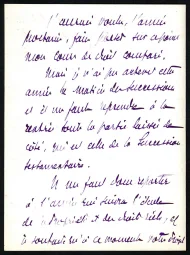 J'aurais voulu, l'année
prochaine, faire porter sur ce point
mon cours de droit comparé.
Mais je n'ai pu achever cette
année la matière des successions
et il me faut reprendre à la
rentrée toute la partie laissée de
côté, qui est celle de la succession
testamentaire.
Il me faut donc reporter
à l'année qui suivra l'étude
de la propriété et des droits réels, et
je souhaite qu'à ce moment votre